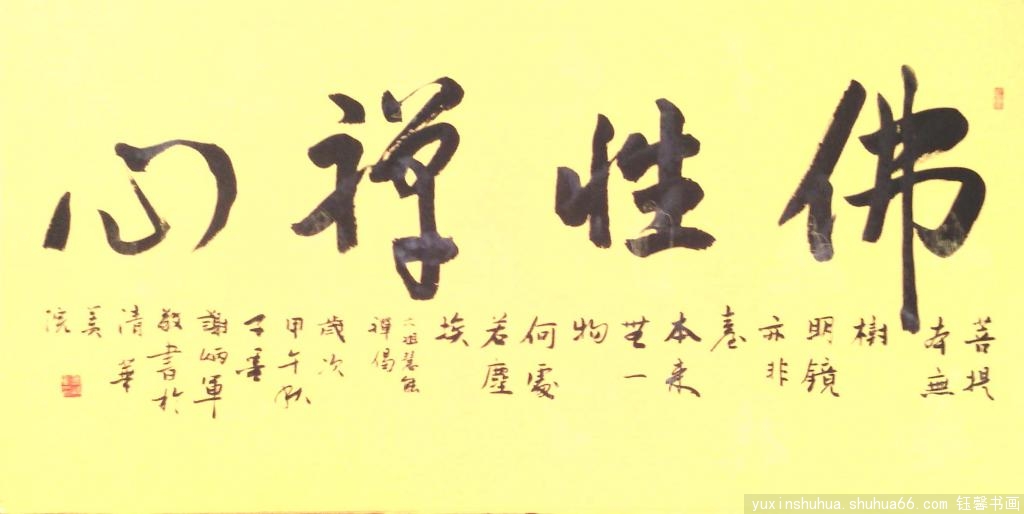 佛性禅心
菩提
本無
樹
明鏡
亦非
臺
本来
無一
物
何處
若塵
埃
六祖慧能
禪偈
歲次
甲午秋
謝炳軍
敬書於
清華
美
院
yuxinshuhua.shuhua66.com 钰馨书画